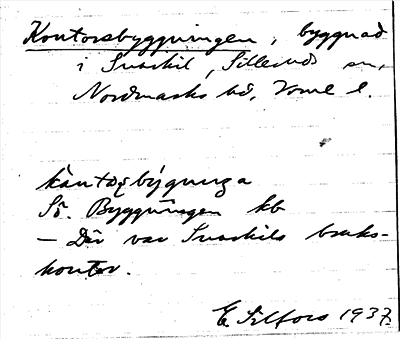 Kontorsbyggningen, byggnad
i Svaskil, Sillerud sn,
Nordmarks hd, Vrml l.
kàntəṣbýgnuŋa
Sö. Byggningen kb
– Där var Svaskils bruks-
kontor.
E. Silfors 1937